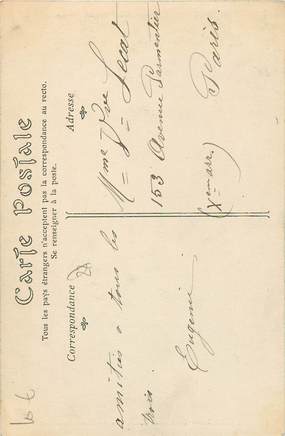 Carte Postale
Tous les pays étrangers n'acceptent pas la correspondance au recto.
Se renseigner à la poste.
Correspondance
Adresse
amitiés à tous les
trois.
Eugénie
Mme Vve Lecat
163 Avenue Parmentier
Paris.
(Xem arr.)